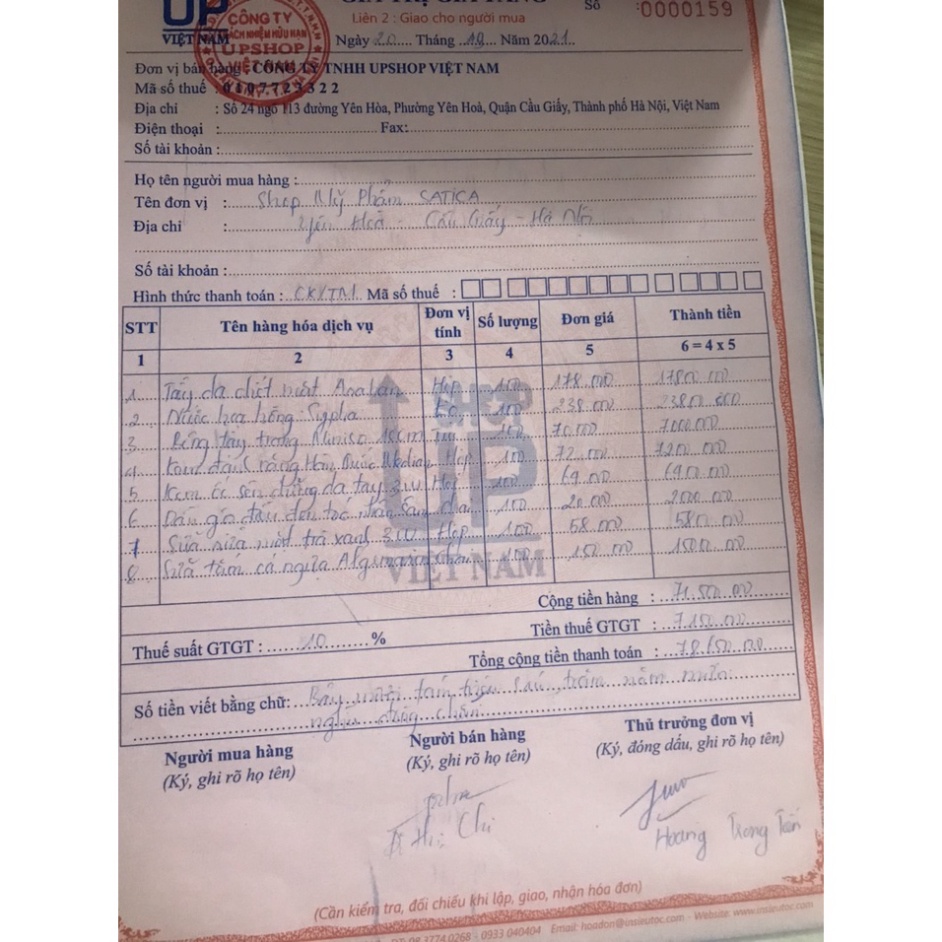 UP
VIỆT NAM
CÔNG TY
TRÁCH NHIỆM HỮU HẠN
UPSHOP
VIỆT NAM
GIÁ TRỊ GIA TĂNG
Liên 2 : Giao cho người mua
Số :0000159
Ngày 20 Tháng 10 Năm 2021
Đơn vị bán hàng : CÔNG TY TNHH UPSHOP VIỆT NAM
Mã số thuế : 0107723322
Địa chỉ : Số 24 ngõ 113 đường Yên Hòa, Phường Yên Hoà, Quận Cầu Giấy, Thành phố Hà Nội, Việt Nam
Điện thoại : Fax:
Số tài khoản :
Họ tên người mua hàng :
Tên đơn vị : Shop Mỹ Phẩm SATICA
Địa chỉ : Yên Hoà - Cầu Giấy - Hà Nội
Số tài khoản :
Hình thức thanh toán : CK/TM Mã số thuế :
STT Tên hàng hóa dịch vụ Đơn vị tính Số lượng Đơn giá Thành tiền
1 2 3 4 5 6 = 4 x 5
1 Tẩy da chết mướt Hộp 100 178.000 17800.000
2 Nước hoa hồng Sypla 100 238.000 23800.000
3 Bông tẩy trang 100 70.000 7000.000
4 Kem chống nắng Hàn Quốc Hộp 100 72.000 7200.000
5 Kem ốc sên dưỡng da tay 3W Hộp 100 69.000 6900.000
6 Dầu gội đầu đen tóc nhân sâm 100 20.000 2000.000
7 Sữa rửa mặt trà xanh 3W Hộp 100 58.000 5800.000
8 Sữa tắm cá ngựa 100 150.000 15000.000
SHOP
UP
VIỆT NAM
Cộng tiền hàng : 71.500.000
Thuế suất GTGT : 10 % Tiền thuế GTGT : 7.150.000
Tổng cộng tiền thanh toán : 78.650.000
Số tiền viết bằng chữ: Bảy mươi tám triệu sáu trăm năm mươi
nghìn đồng chẵn
Người mua hàng Người bán hàng Thủ trưởng đơn vị
(Ký, ghi rõ họ tên) (Ký, ghi rõ họ tên) (Ký, đóng dấu, ghi rõ họ tên)
Chi
Hoàng Trọng
(Cần kiểm tra, đối chiếu khi lập, giao, nhận hóa đơn)
ĐT: 08.3774.0268 - 0933 040404 Email: hoadon@insinutoc.com - Website: www.insinutoc.com